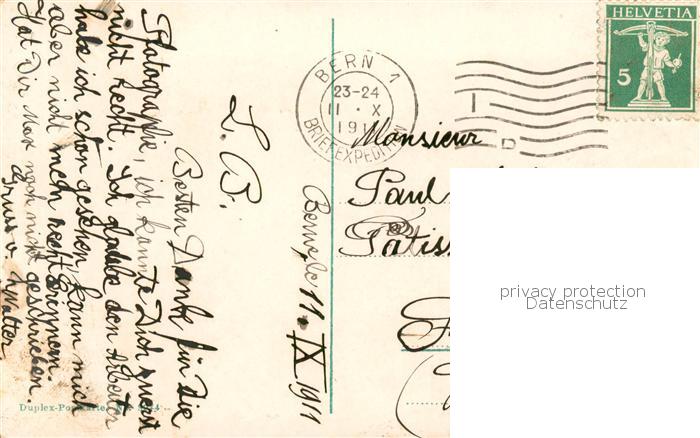 HELVETIA
5
BERN 1
23-24
11 · X
191
BRIEFEXPEDITION
Monsieur
Paul
Patiss
privacy protection
Datenschutz
Bern, le 11. IX 1911
L. B.
Besten Dank für die
Photographie, ich kannte Dich zuerst
nicht recht. Ich glaube den Arbeiter
habe ich schon gesehen, kann mich
aber nicht mehr recht erinnern.
Hat Dir Max noch nicht geschrieben.
Gruss v. Walter
Duplex-Postkarte